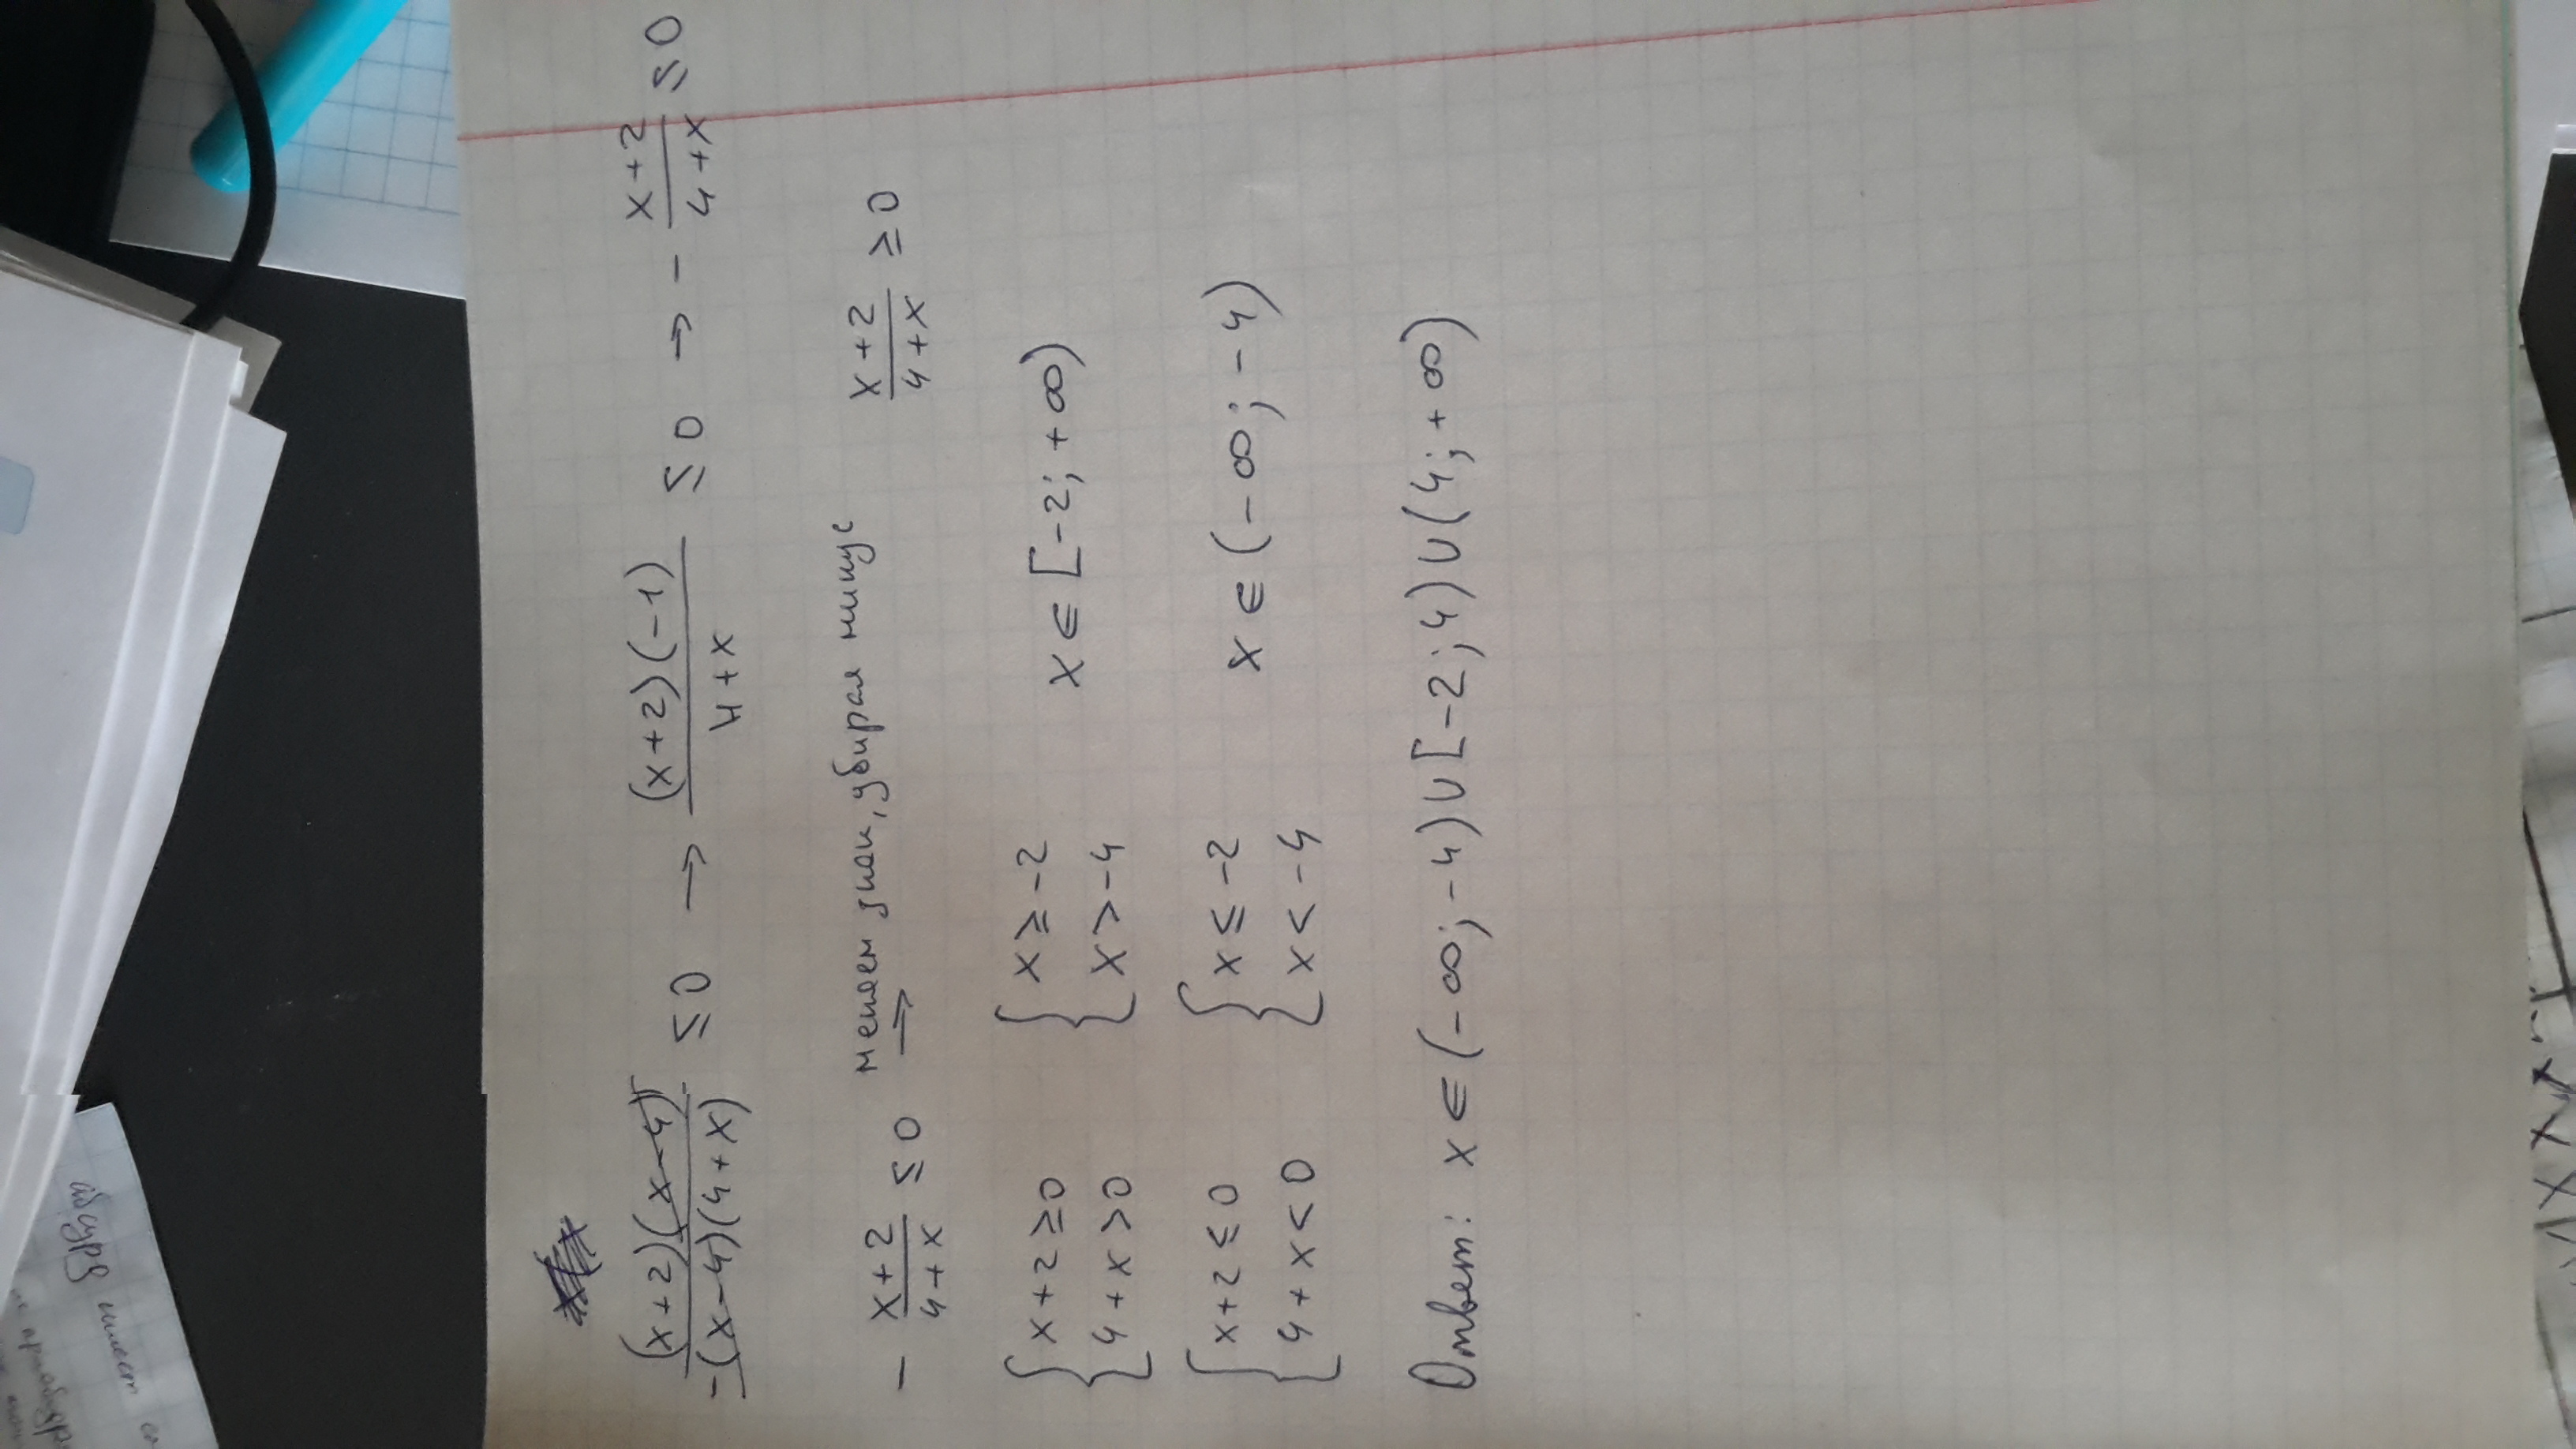 (x+2)(x-4) / -(x-4)(4+x) ≤ 0 → (x+2)(-1) / 4+x ≤ 0 → - x+2 / 4+x ≤ 0
- x+2 / 4+x ≤ 0 меняем знак, убирая минус ⇒ x+2 / 4+x ≥ 0
{ x+2≥0 { x≥-2
{ 4+x>0 { x>-4 x∈[-2;+∞)
{ x+2≤0 { x≤-2
{ 4+x<0 { x<-4 x∈(-∞;-4)
Ответ: x∈(-∞;-4)∪[-2;4)∪(4;+∞)
абсурд
имеет